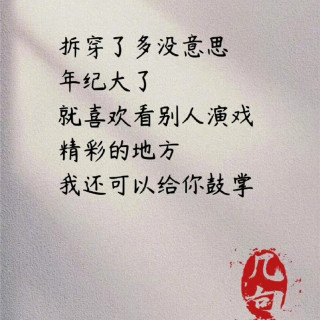 拆穿了多没意思
年纪大了
就喜欢看别人演戏
精彩的地方
我还可以给你鼓掌
几句